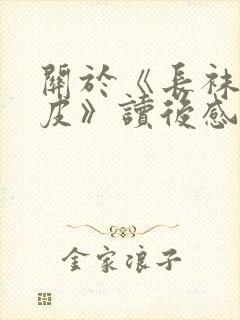 關於《長袜
皮》讀後感
金家浪子